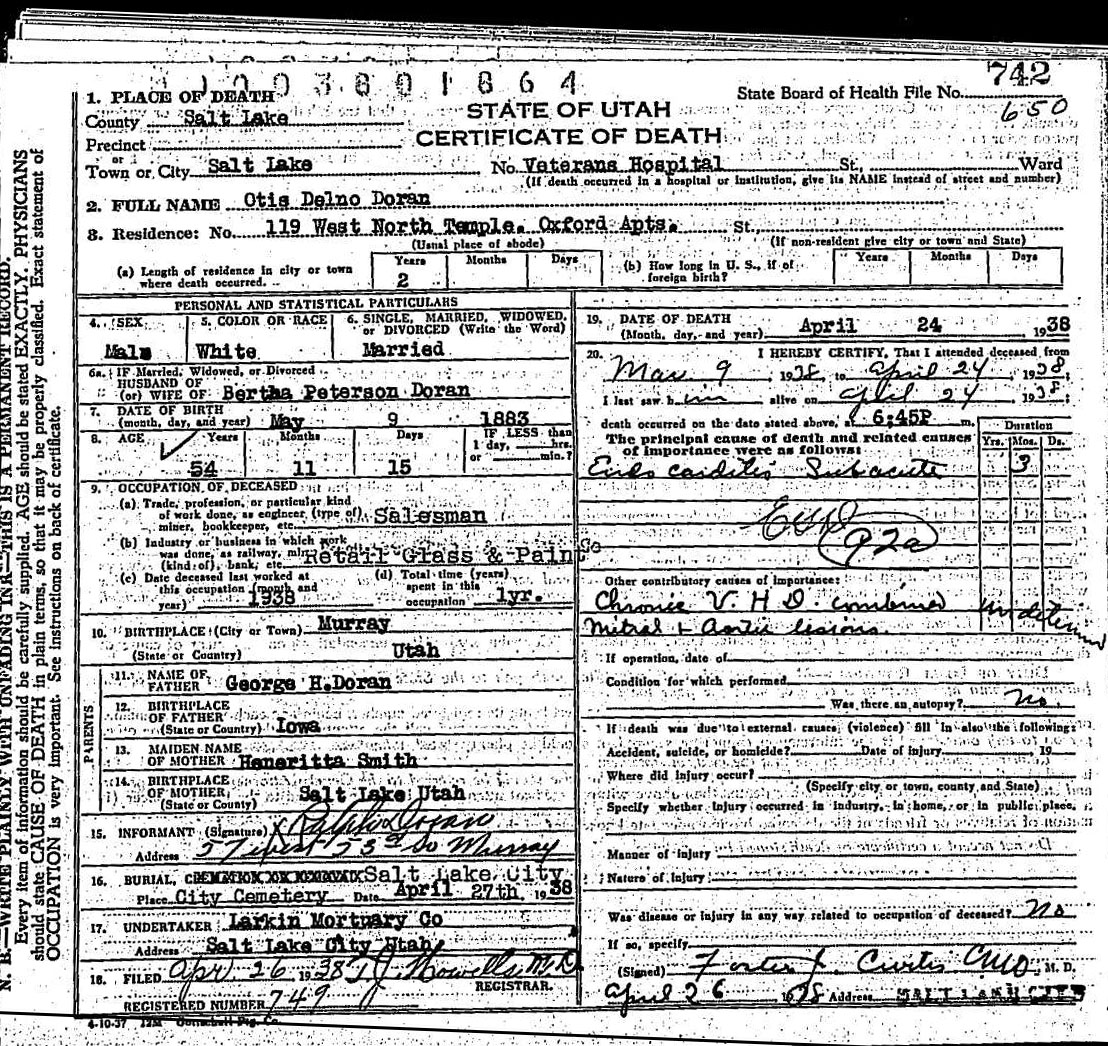 1003801864
742
State Board of Health File No.
650
1. PLACE OF DEATH
County Salt Lake
STATE OF UTAH
CERTIFICATE OF DEATH
Precinct
or
Town or City Salt Lake No. Veterans Hospital St, Ward
(If death occurred in a hospital or institution, give its NAME instead of street and number)
2. FULL NAME Otis Delno Doran
3. Residence: No. 119 West North Temple. Oxford Apts. St.
(Usual place of abode) (If non-resident give city or town and State)
(a) Length of residence in city or town where death occurred. Years 2 Months Days
(b) How long in U. S., if of foreign birth? Years Months Days
PERSONAL AND STATISTICAL PARTICULARS
4. SEX 5. COLOR OR RACE 6. SINGLE, MARRIED, WIDOWED, or DIVORCED (Write the Word)
Male White Married
6a. IF Married, Widowed, or Divorced
HUSBAND OF
(or) WIFE OF Bertha Peterson Doran
7. DATE OF BIRTH
(month, day, and year) May 9 1883
8. AGE Years Months Days IF LESS than 1 day, hrs. or min.?
54 11 15
9. OCCUPATION OF DECEASED
(a) Trade, profession, or particular kind
of work done, as engineer, (type of), Salesman
miner, bookkeeper, etc.
(b) Industry or business in which work
was done, as railway, mine
(kind of), bank, etc. Retail Glass & Paint Co
(c) Date deceased last worked at
this occupation (month and
year) 1938
(d) Total time (years)
spent in this
occupation 1yr.
10. BIRTHPLACE (City or Town) Murray
(State or Country) Utah
PARENTS
11. NAME OF
FATHER George H.Doran
12. BIRTHPLACE
OF FATHER
(State or Country) Iowa
13. MAIDEN NAME
OF MOTHER Heneritta Smith
14. BIRTHPLACE
OF MOTHER
(State or County) Salt Lake Utah
15. INFORMANT (Signature) X Ralph Doran
Address 57 West 53rd So Murray
16. BURIAL, Salt Lake City
Place City Cemetery Date April 27th, 1938
17. UNDERTAKER Larkin Mortuary Co
Address Salt Lake City Utah
18. FILED Apr 26 1938 T J Howells M.D.
REGISTRAR.
REGISTERED NUMBER 749
4-10-37
19. DATE OF DEATH
(Month, day, and year) April 24 1938
20. I HEREBY CERTIFY, That I attended deceased from
Mar 9, 1938, to April 24 1938;
I last saw him alive on April 24 1938;
death occurred on the date stated above, at 6:45P m.
The principal cause of death and related causes
of importance were as follows:
Duration
Yrs. Mos. Ds.
Endocarditis Subacute 3
92a
Other contributory causes of importance:
Chronic V. H. D. combined
Mitral & Aortic lesions.
If operation, date of
Condition for which performed
Was there an autopsy? No.
If death was due to external causes (violence) fill in also the following:
Accident, suicide, or homicide? Date of injury 19
Where did injury occur?
(Specify city or town, county and State)
Specify whether injury occurred in industry, in home, or in public place,
Manner of injury
Nature of Injury
Was disease or injury in any way related to occupation of deceased? No
If so, specify
(Signed) Foster J. Curtis CMO, M. D.
April 26 1938 Address SALT LAKE CITY
N. B.—WRITE PLAINLY WITH UNFADING INK—THIS IS A PERMANENT RECORD.
Every item of information should be carefully supplied. AGE should be stated EXACTLY. PHYSICIANS
should state CAUSE OF DEATH in plain terms, so that it may be properly classified. Exact statement of
OCCUPATION is very important. See instructions on back of certificate.